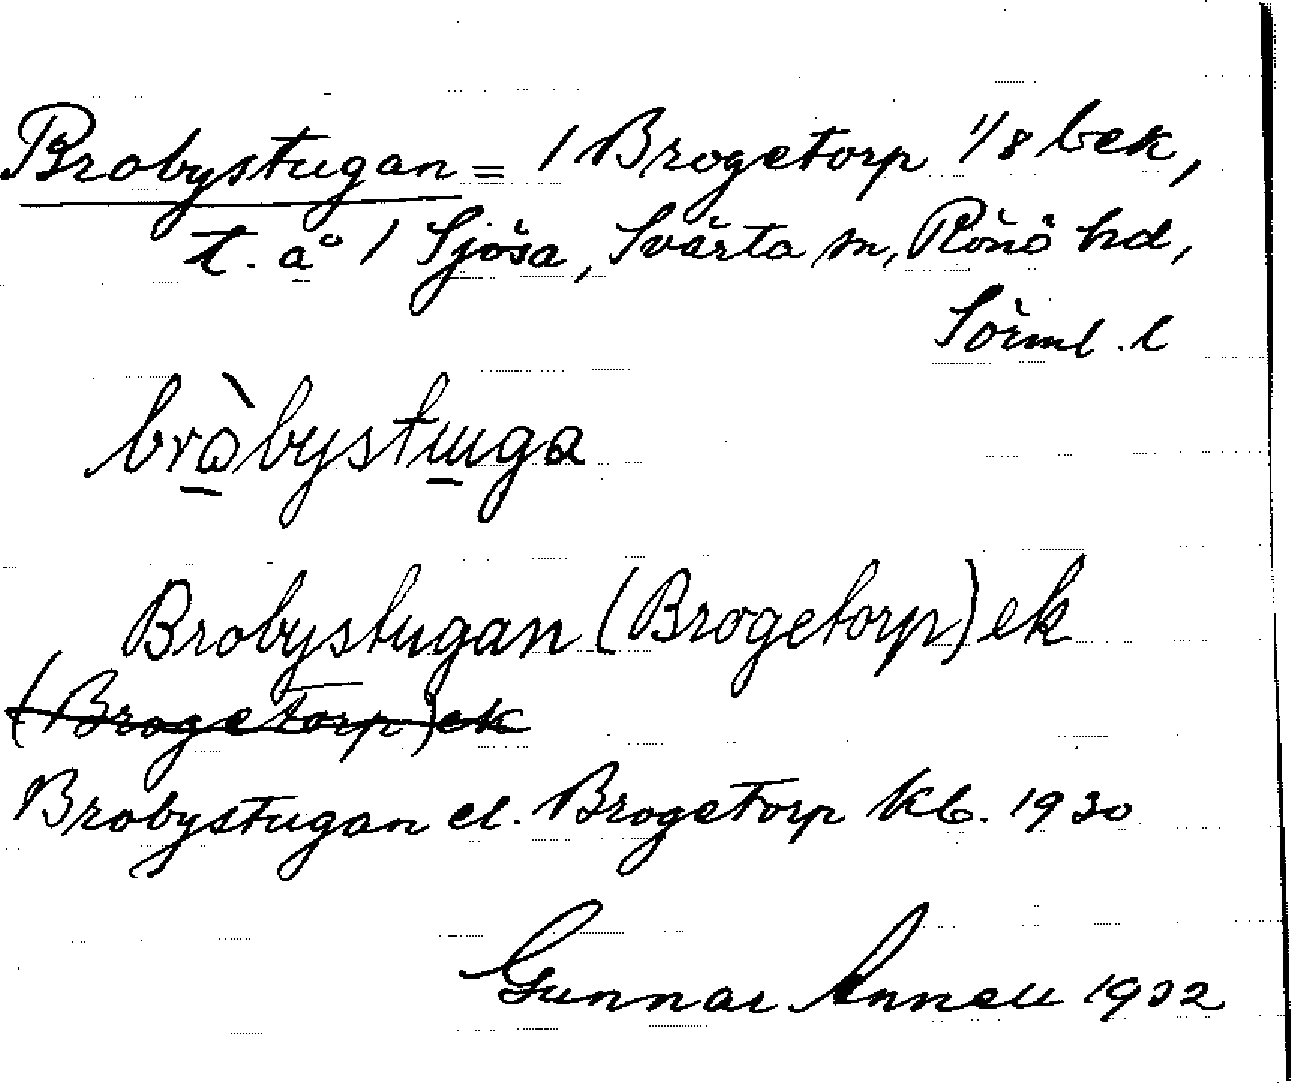 Brobystugan = 1 Brogetorp 1/8 bek,
t. å 1 Sjösa, Svärta sn, Rönö hd,
Sörml. l
bròbystuga
Brobystugan (Brogetorp) ek
(Brogetorp) ek
Brobystugan el. Brogetorp Kb. 1930
Gunnar Annell 1932